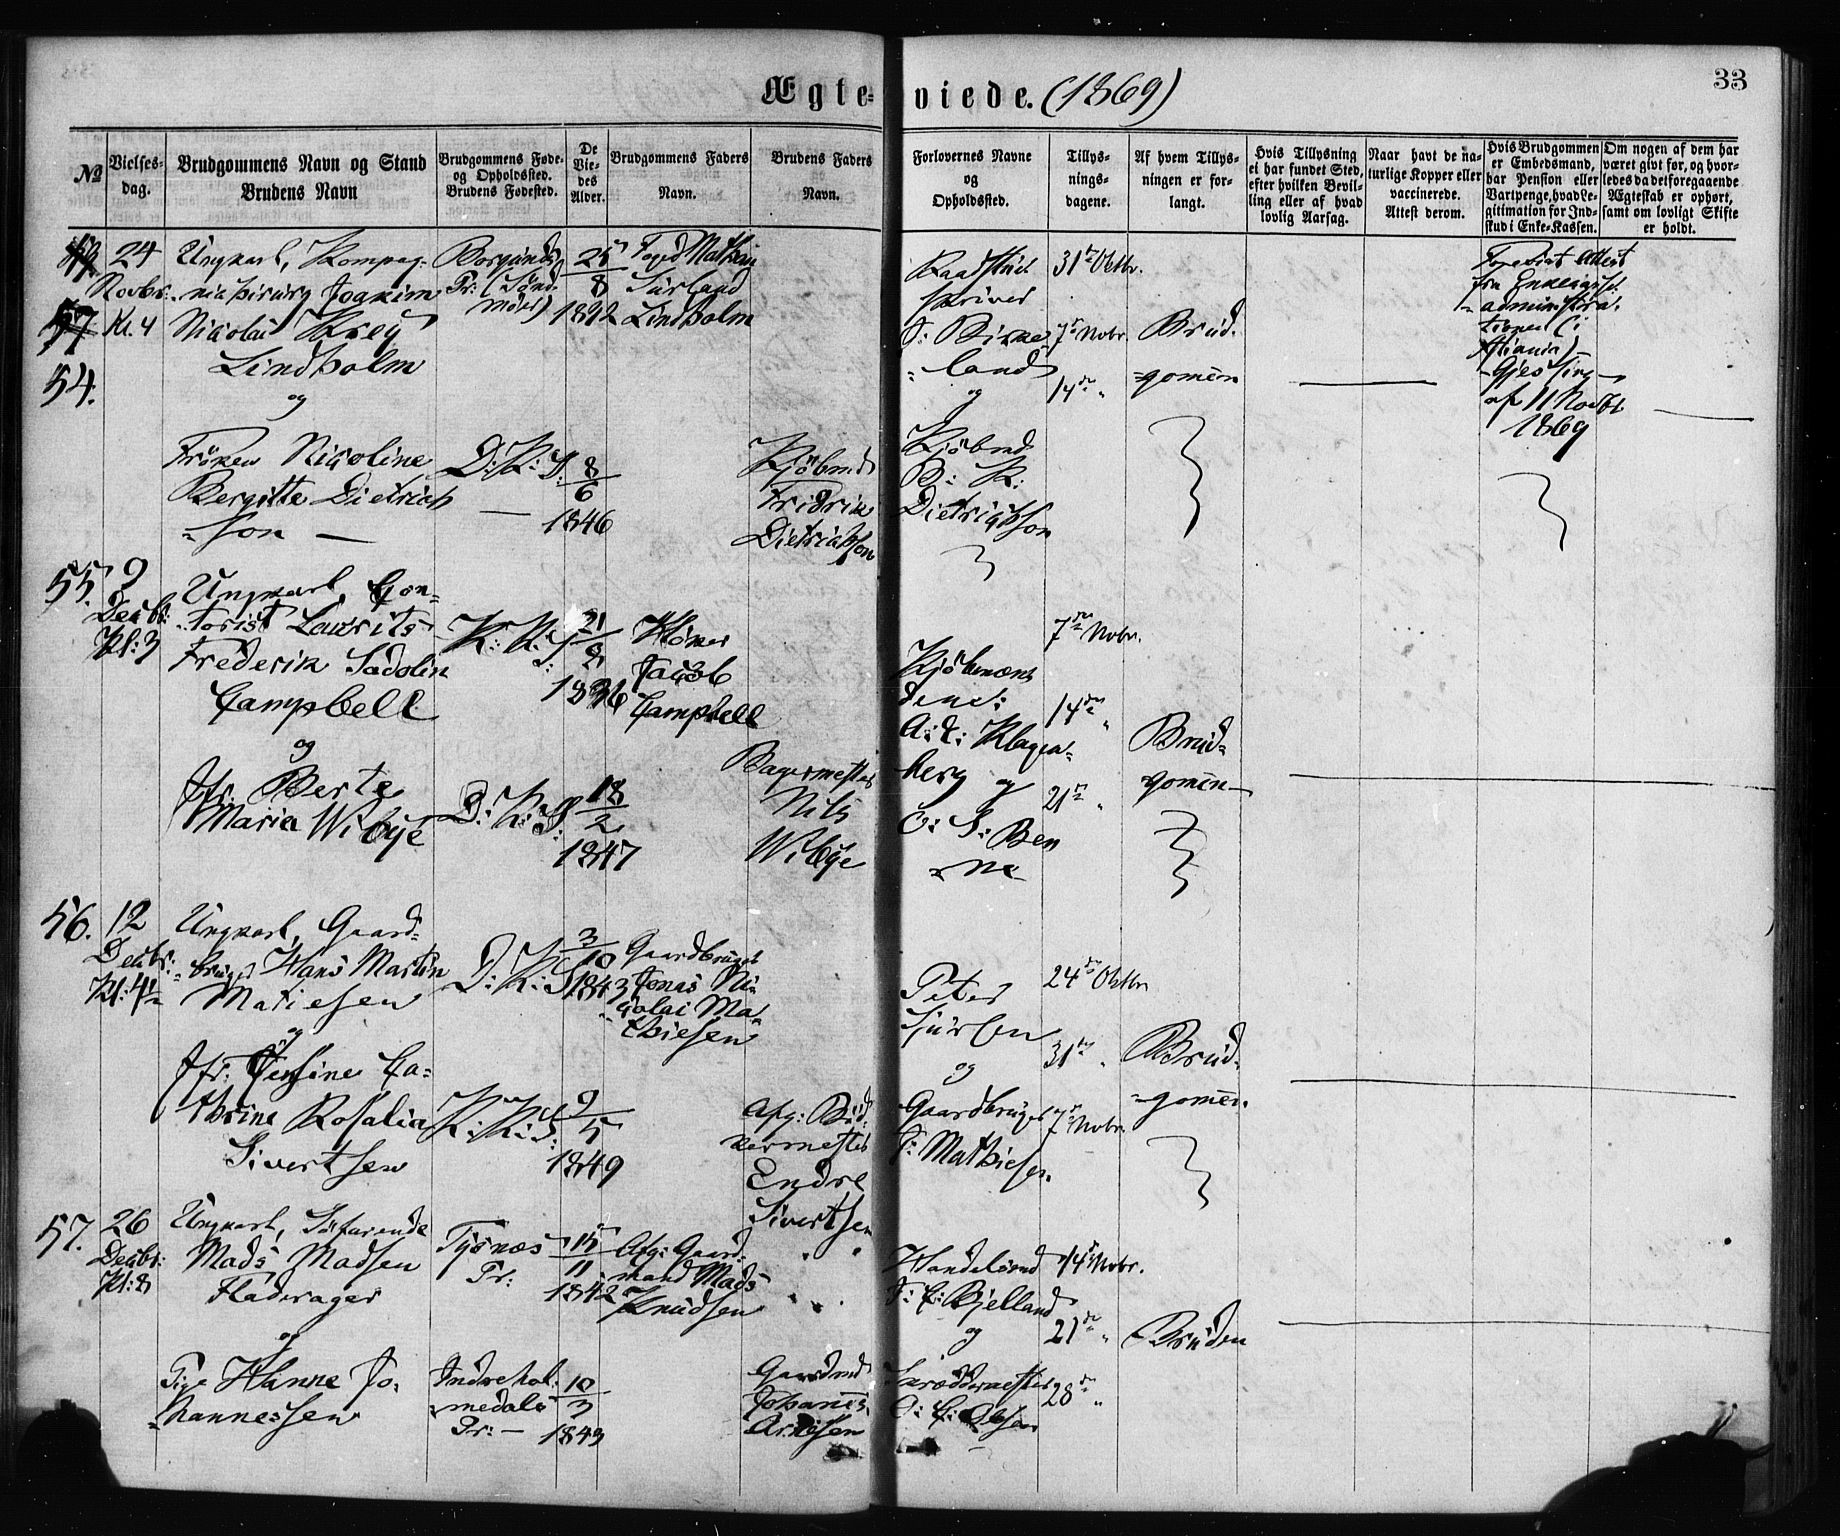 Ægte-
viede. (1869)
33
№
Vielses-
dag.
Brudgommens Navn og Stand
Brudens Navn
Brudgommens Føde-
og Opholdssted.
Brudens Fødested.
De
Vie-
des
Alder.
Brudgommens Faders
Navn.
Brudens Faders
Navn.
Forlovernes Navne
og
Opholdssted.
Tillys-
nings-
dagene.
Af hvem Tillys-
ningen er for-
langt.
Hvis Tillysning
ei har fundet Sted,
efter hvilken Bevil-
ling eller af hvad
lovlig Aarsag.
Naar havt de na-
turlige Kopper eller
vaccinerede.
Attest derom.
Hvis Brudgommen
er Embedsmand,
har Pension eller
Vartpenge, hvad Le-
gitimation for Ind-
skud i Enke-Kassen.
Om nogen af dem har
været givt før, og hvor-
ledes da det foregaaende
Ægteskab er ophørt,
samt om lovligt Skifte
er holdt.
54.
24
Novbr.
Kl. 4
Ungkarl, Kompag-
nichirurg Joakim
Nicolai Krey
Lindholm
og
Frøken Nicoline
Bergitte Dietrich
-son
Borgunds
Pr: (Sønd-
møer)
D: K: S:
25
8
1842
8
6
1846
Foged Mathias
Lindholm
Kjøbmd
Fridrik
Dietrichson
skriver
S: Birke-
land
og
Kjøbmd
B: K:
Dietrichson
31te Oktbr.
7de Novbr
14de "
Brud-
gomen
Attest
fra
administra-
tionen i
af 11 Novbr
1869
55.
9
Decbr:
Kl: 3
Ungkarl, Con-
torist Laurits
Frederik Sadolin
Campbell
og
Jfr: Berte
Maria Wibye
K: K: S:
D: K: S:
21
2
1836
18
2
1847
Jacob
Campbell
Bagermester
Nils
Wibye
Kjøbmænd
dene:
berg og
O: S: Ben
-ne
7de Nvbr.
14de "
21de "
Brud-
gomen
56.
12
Decbr:
Kl: 4½
Ungkarl, Gaard-
bruger Hans Martin
Matiesen
og
Jfr: Jensine Ca-
thrine Rosalia
Sivertsen
D: K: S:
K: K: S:
3
10
1843
9
5
1849
Gaardbruger
Jonas Ni-
colai Ma-
thiesen
Afg: Bød-
kermester
Endre
Sivertsen
Peter
Sjursen
og
Gaardbruger
S: Mathiesen
24de Oktbr
31te "
7de Novbr
Brud-
gomen
57.
26
Decbr:
Kl: 8
Ungkarl, Søfarende
Mads Madsen
Fladerager
og
Pige Hanne Jo-
hannessen
Tysnæs
Pr:
Indrehol-
medals
Pr:
15
11
1842
10
3
1843
Afg: Gaard-
mand Mads
Knudsen
Gaardmd
Johannes
Arnesen
Handelsmd
S: E: Bjelland
og
Skræddermester
S: E: Olsen
14de Novbr.
21de "
28de "
Bruden